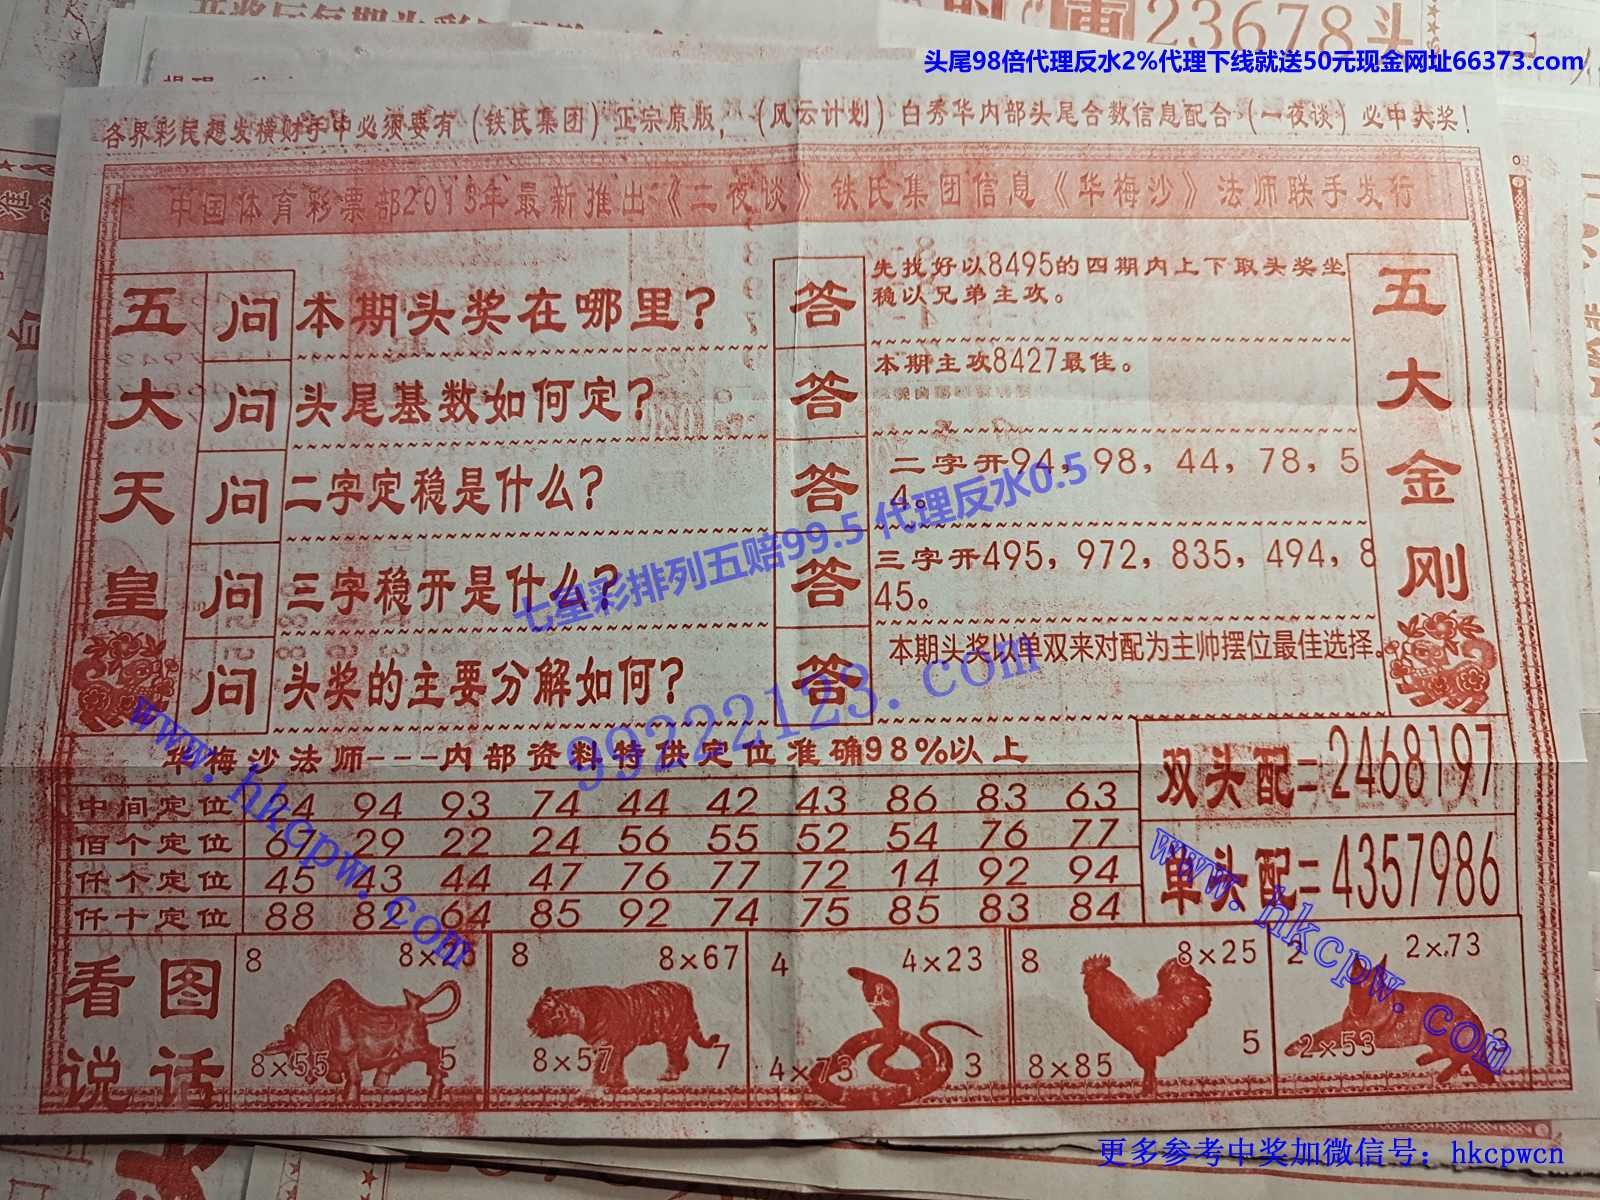 23678头
头尾98倍代理反水2%代理下线就送50元现金网址66373.com
各界彩民想发横财手中必须要有（铁氏集团）正宗原版，（风云计划）白秀华内部头尾合数信息配合（一夜谈）必中大奖！
中国体育彩票部2013年最新推出《二夜谈》铁氏集团信息《华梅沙》法师联手发行
五大天皇
问 本期头奖在哪里？
答 先找好以8495的四期内上下取头奖坐
稳以兄弟主攻。
问 头尾基数如何定？
答 本期主攻8427最佳。
问 二字定稳是什么？
答 二字开94，98，44，78，5
4。
问 三字稳开是什么？
答 三字开495，972，835，494，8
45。
问 头奖的主要分解如何？
答 本期头奖以单双来对配为主帅摆位最佳选择。
五大金刚
七星彩排列五赔99.5 代理反水0.5
99222123.com
www.hkcpw.com
华梅沙法师---内部资料特供定位准确98%以上
中间定位 24 94 93 74 44 42 43 86 83 63
佰个定位 67 29 22 24 56 55 52 54 76 77
仟个定位 45 43 44 47 76 77 72 14 92 94
仟十定位 88 82 64 85 92 74 75 85 83 84
双头配=2468197
单头配=4357986
www.hkcpw.com
看图说话
8 8×25
8×55 5
8 8×67
8×57 7
4 4×23
4×73 3
8 8×25
8×85 5
2 2×73
2×53 3
更多参考中奖加微信号：hkcpwcn